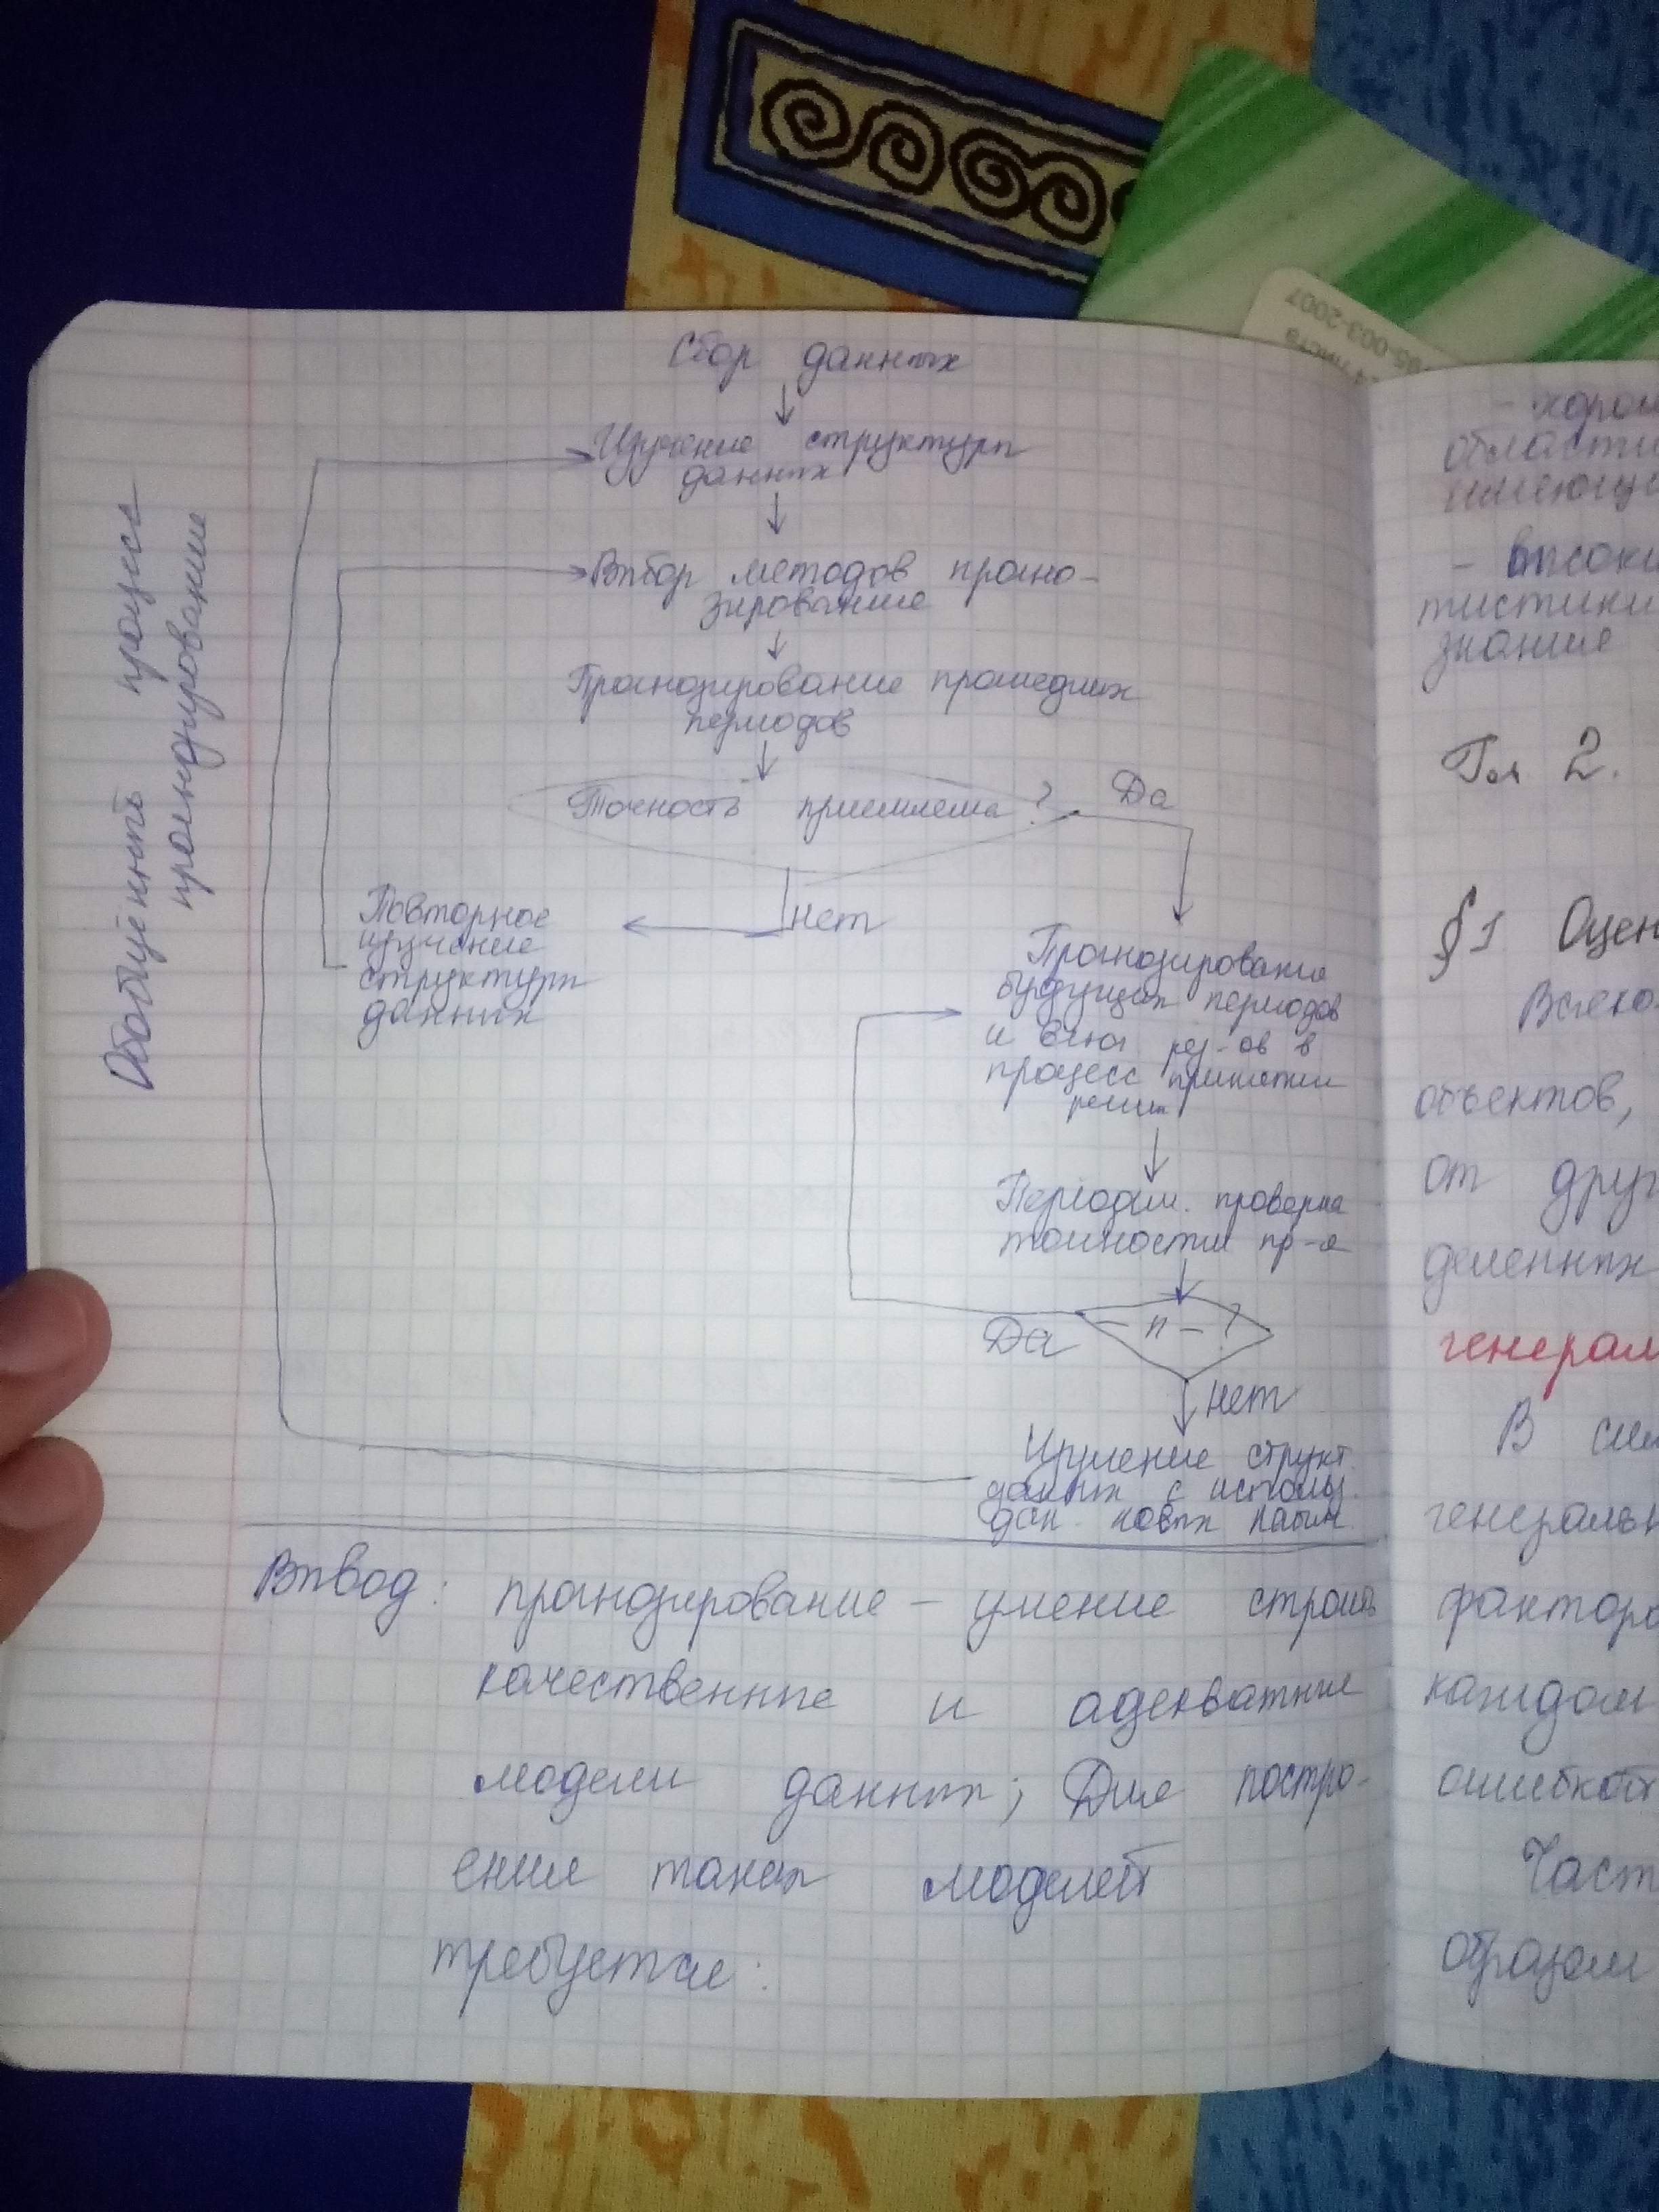 Обобщённый процесс
прогнозирования
Сбор данных
Изучение структуры
данных
Выбор методов прогно-
зирования
Прогнозирование прошедших
периодов
Точность приемлема? Да
нет
Повторное
изучение
структуры
данных
Прогнозирование
будущих периодов
и рез-ов в
процесс принятия
решен
Периодич. проверка
точности пр-я
Да – " – ?
нет
Изучение структ.
данных с использ.
дан. новых
Вывод: прогнозирование – умение строить
качественные и адекватные
модели данных; Для постро-
ения таких моделей
требуется:
области
имеющи
– высоки
тистики
знание
Гл 2.
§1 Оцен
объектов,
от друг
деленных
генерал
В
генеральн
фактора
каждом
ошибкой
Част
образом
4 листа
95-003-2007